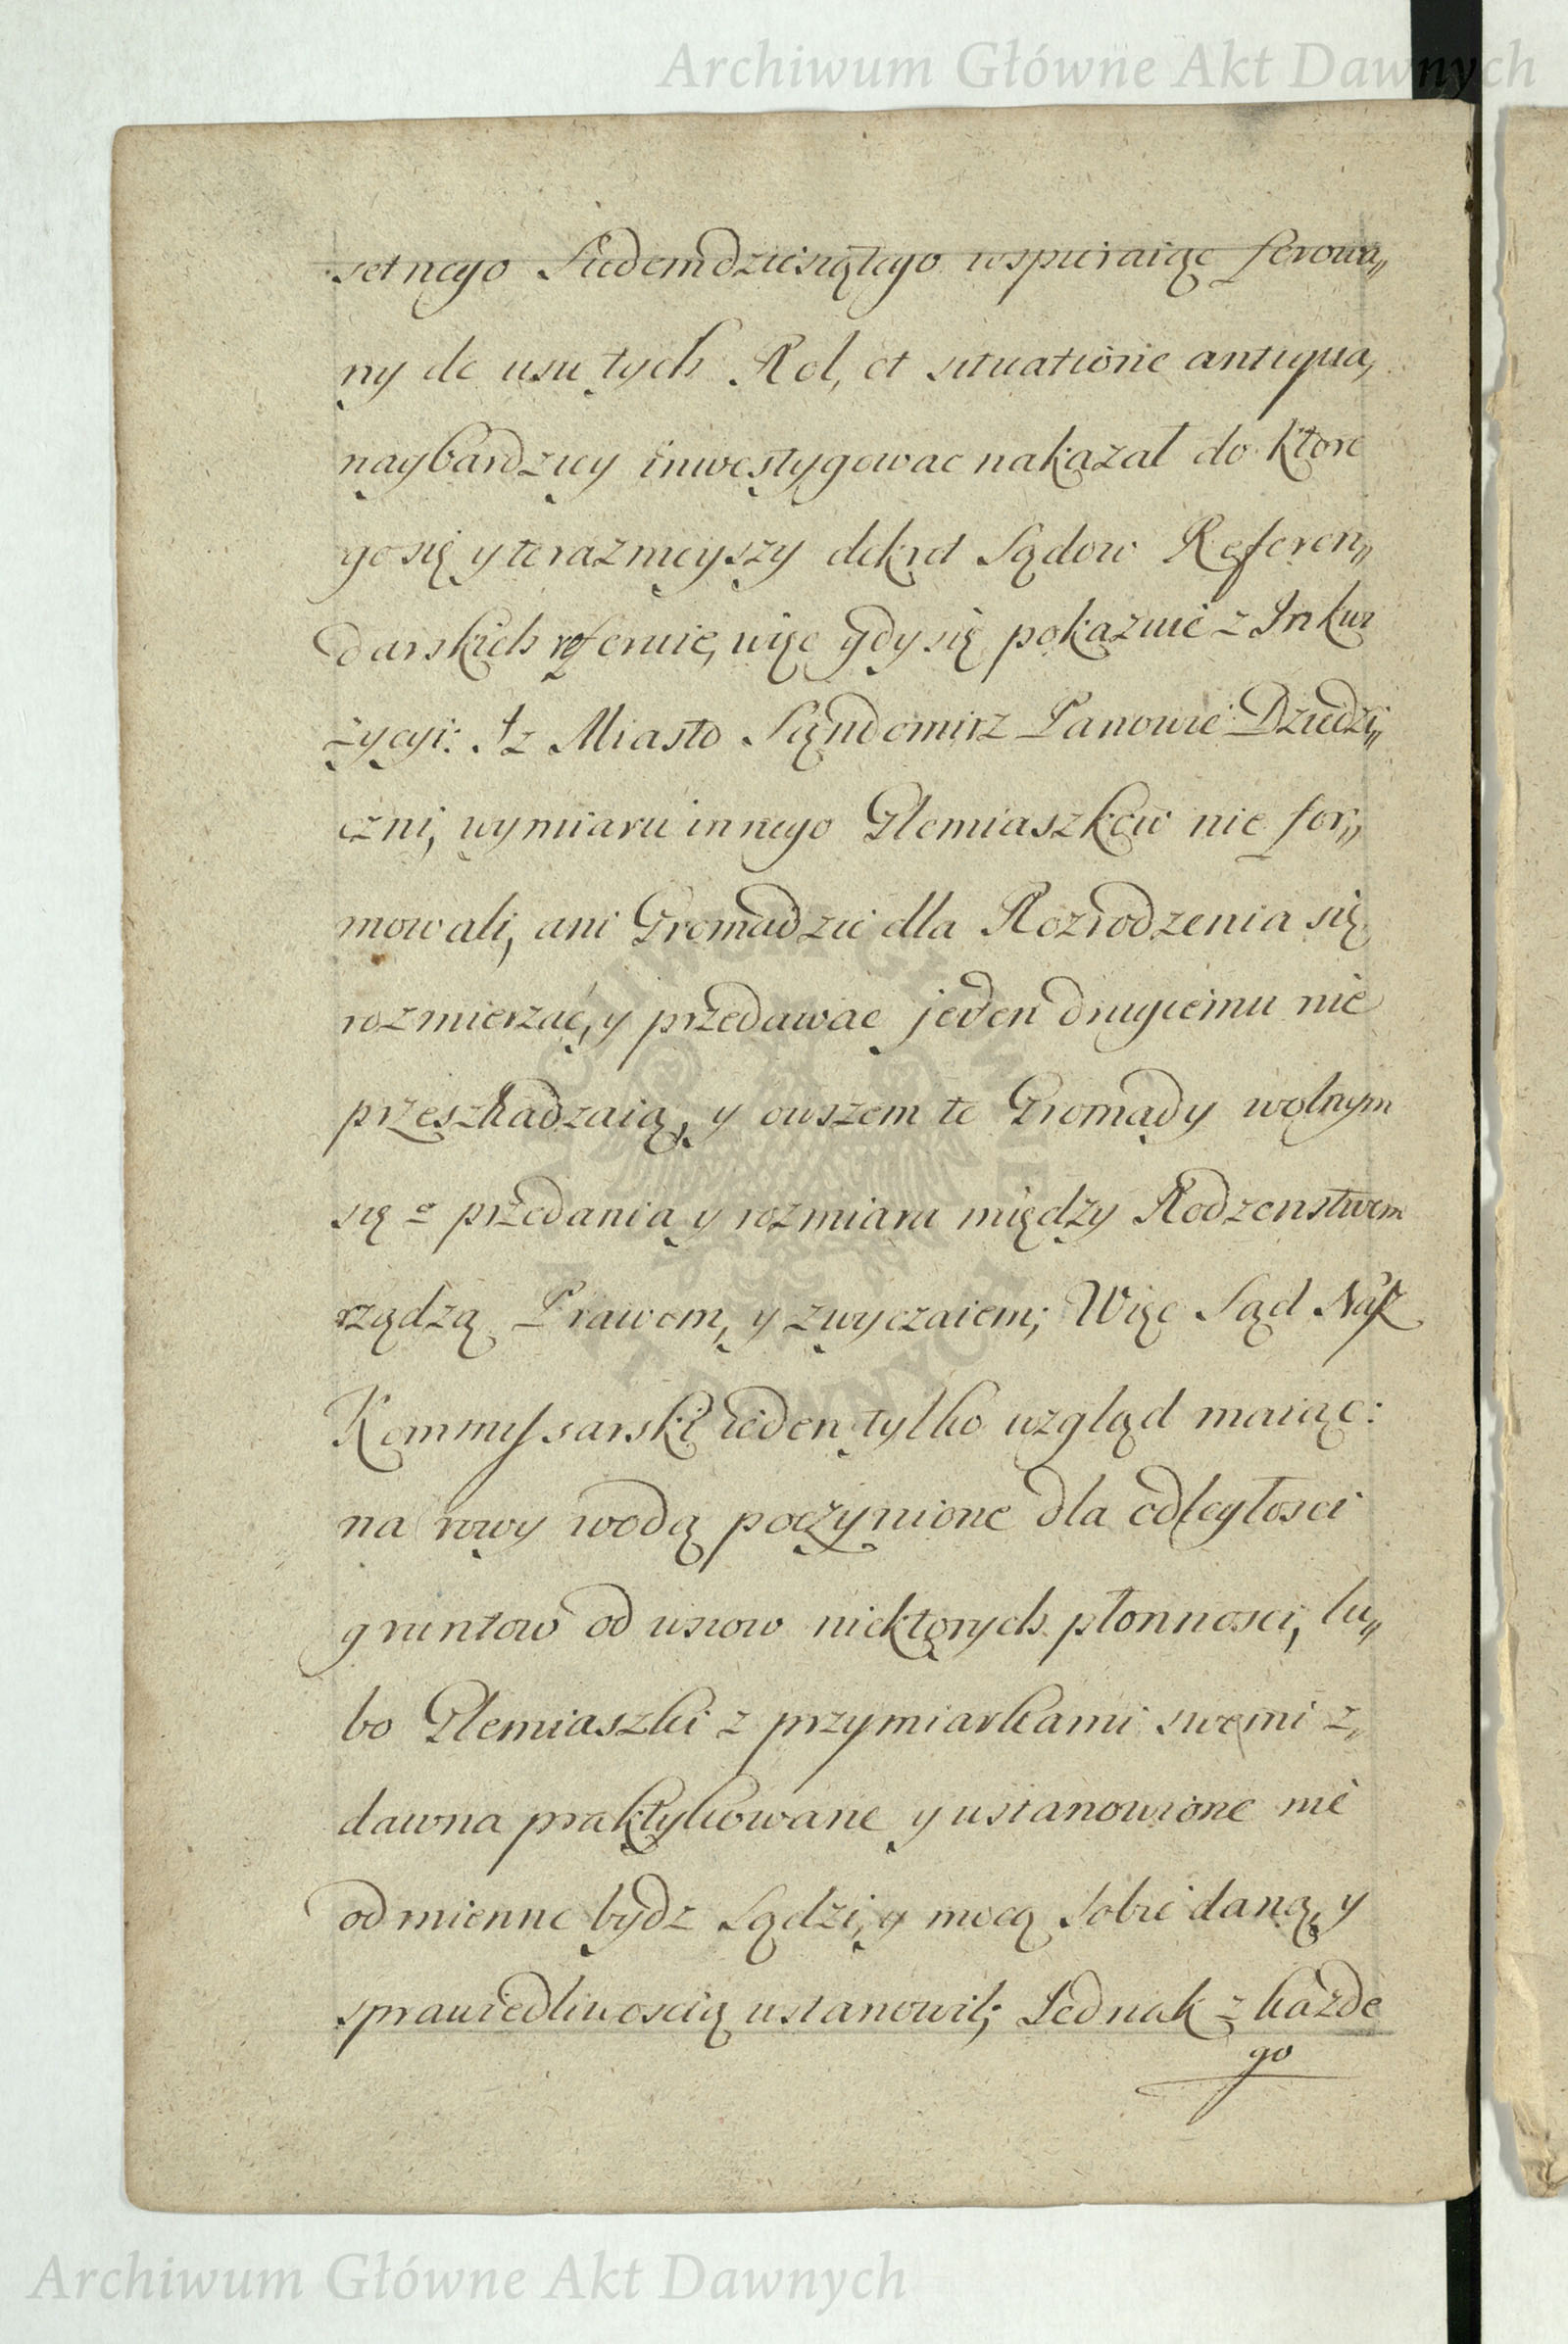 Archiwum Główne Akt Dawnych
setnego Siedemdziesiątego wspieraiąc ferowa„
ny de usu tych Rol, et situatione antiqua,
naybardziey inwestygowac nakazał do ktore
go się y teraznieyszy dekret Sądow Referen„
darskich referuie, więc gdy się pokazuie z Inkwi
zycyi: Iz Miasto Sandomirz Panowie Dziedzi„
czni, wymiaru innego Plemiaszkow nie for„
mowali, ani Gromadzie dla Rozrodzenia się
rozmierzać, y przedawac jeden drugiemu nie
przeszkadzaią, y owszem te Gromady wolnym
się o przedania y rozmiaru między Rodzenstwem
rządzą Prawem, y zwyczaiem; Więc Sąd Nasz
Kommyssarski ieden tylko wzgląd maiąc:
na rowy wodą poczynione dla odległosci
gruntow od wsiow niektorych płonnosci, lu„
bo Plemiaszki z przymiarkami swemi z„
dawna praktykowane y ustanowione nie
odmienne bydz Sądzi, y mocą Sobie daną, y
sprawiedliwoscią ustanowił; Jednak z kazde
go
Archiwum Główne Akt Dawnych